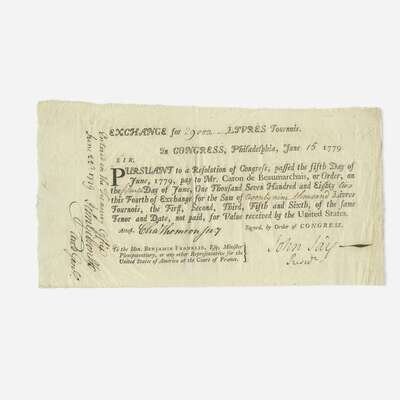 EXCHANGE for 29000 LIVRES Tournois.
In CONGRESS, Philadelphia, June 15 1779
SIR,
PURSUANT to a Resolution of Congress, passed the fifth Day of
June, 1779, pay to Mr. Caron de Beaumarchais, or Order, on
the Day of June, One Thousand Seven Hundred and Eighty two
this Fourth of Exchange for the Sum of Twenty nine thousand Livres
Tournois, the First, Second, Third, Fifth and Sixth, of the same
Tenor and Date, not paid, for Value received by the United States.
Signed, by Order of CONGRESS.
Attest. Cha Thomson secy
John Jay
Presidt
To the Hon. BENJAMIN FRANKLIN, Esq; Minister
Plenipotentiary, or any other Representative for the
United States of America at the Court of France.
Entered in the Treasury Office
June 22d 1779